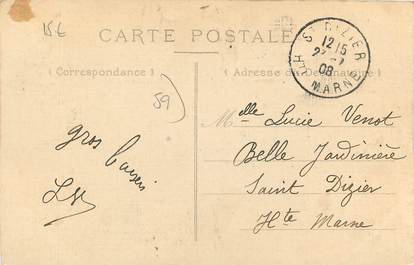 15 €
CARTE POSTALE
(Correspondance)
(Adresse du Destinataire)
ST DIZIER
12 15
08
HTE MARNE
59
Melle Lucie Venot
Belle Jardinière
Saint Dizier
Hte Marne
gros baisers